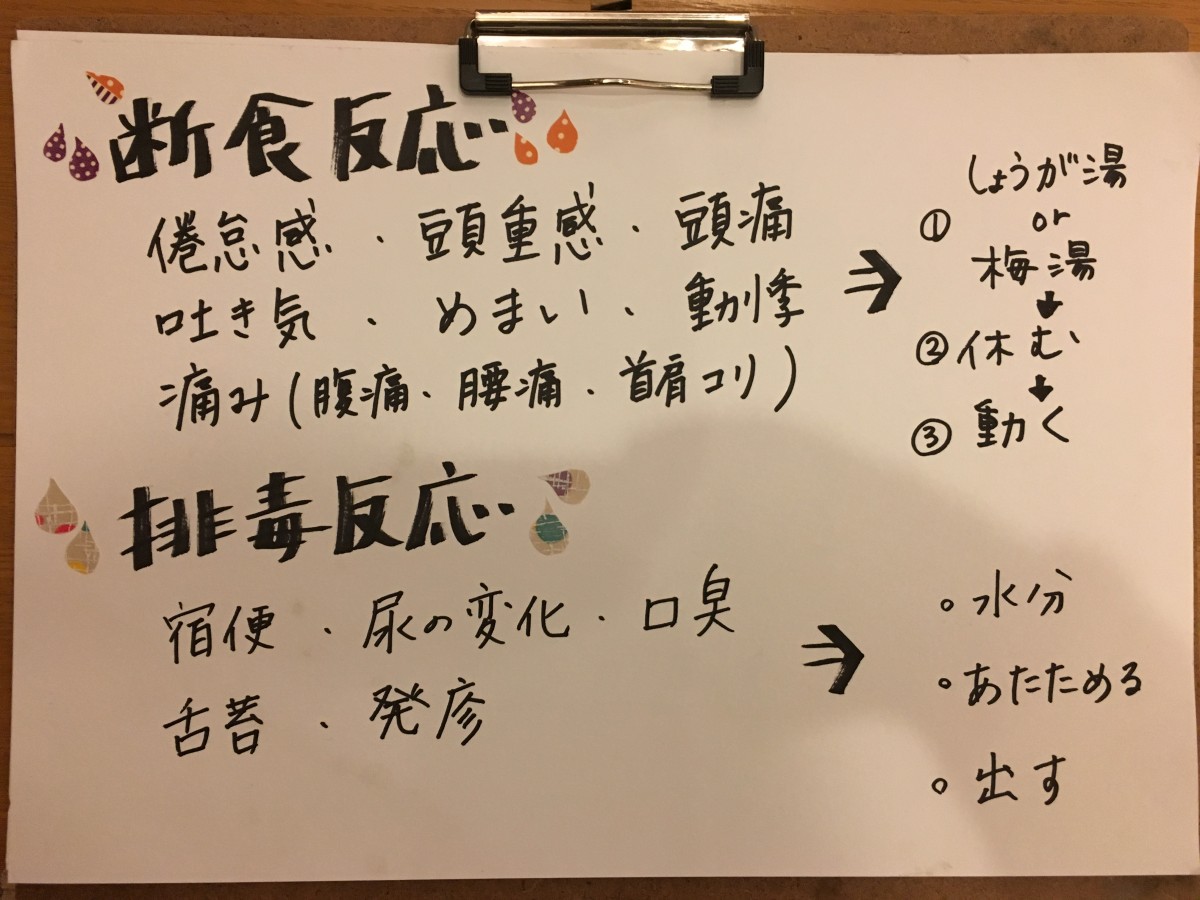 断食反応
倦怠感 . 頭重感 . 頭痛
吐き気 . めまい . 動悸
痛み(腹痛 . 腰痛 . 首肩コリ)
しょうが湯
① or
梅湯
② 休む
③ 動く
排毒反応
宿便 . 尿の変化 . 口臭
舌苔 . 発疹
。水分
。あたためる
。出す